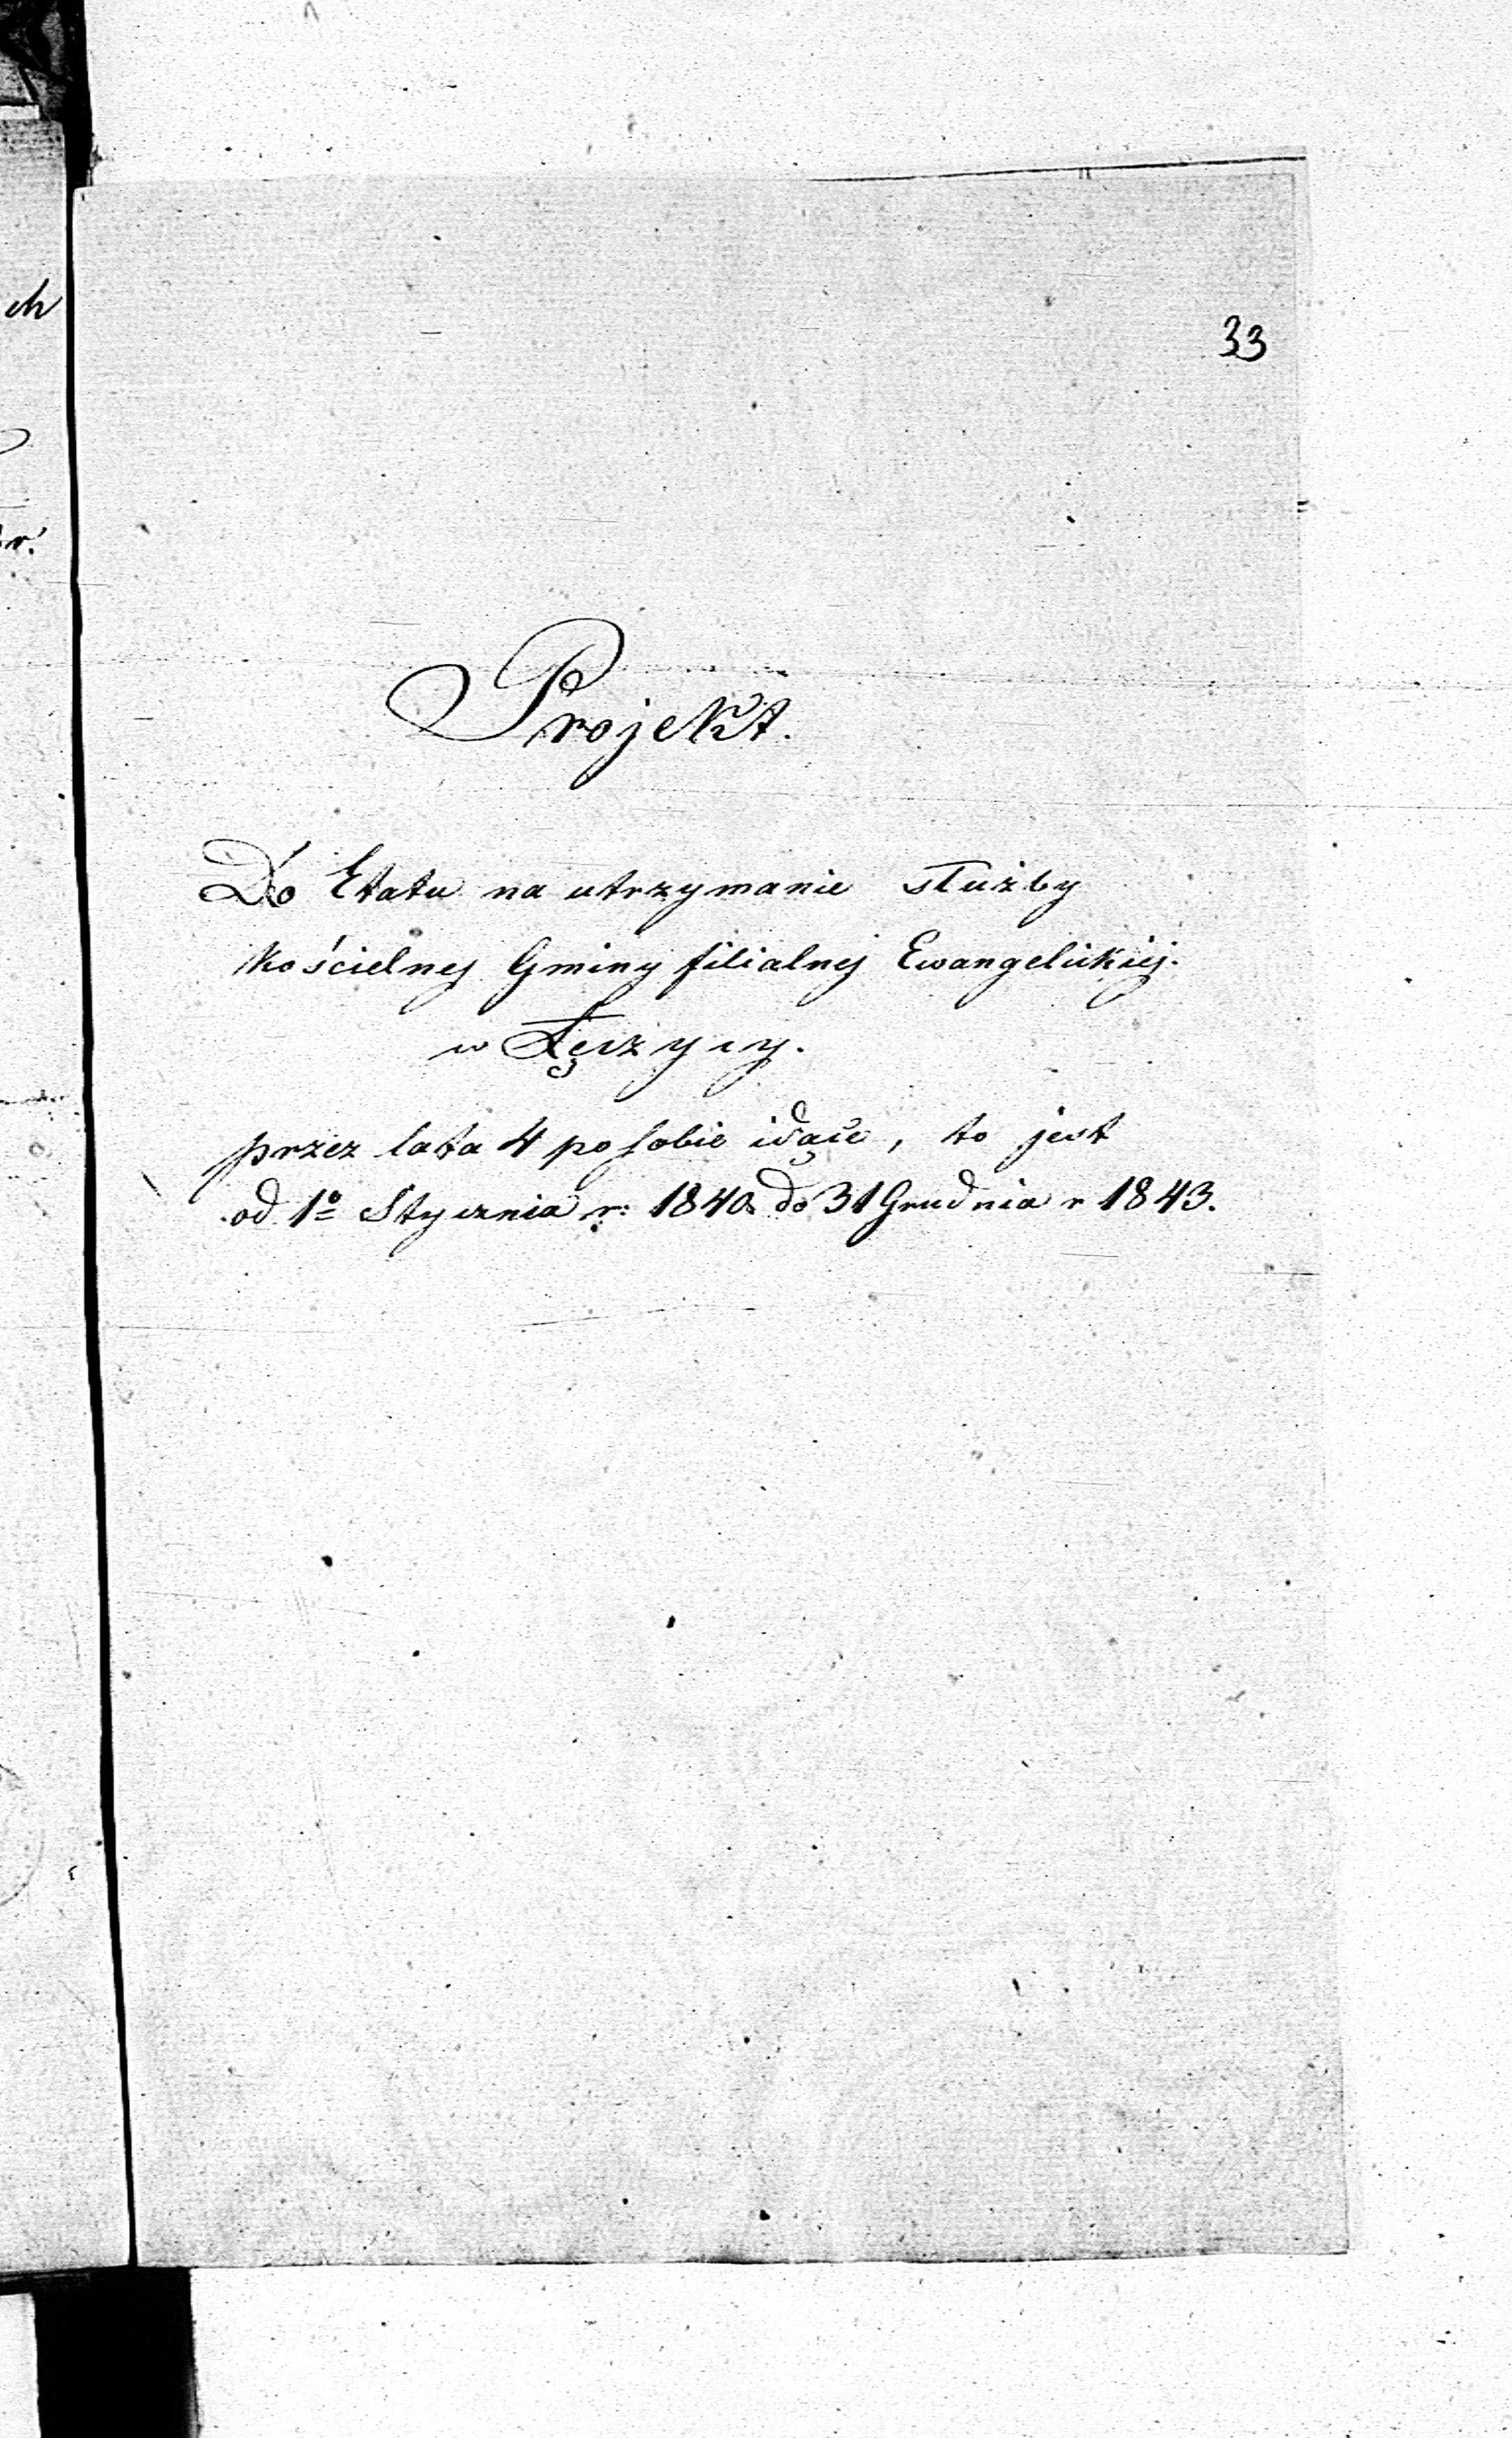 33
Projekt.
Do Etatu na utrzymanie służby
kościelney Gminy filialnej Ewangelickiej.
w Łęczycy.
przez lata 4 po sobie idące, to jest
od 1º Stycznia r: 1840 do 31 Grudnia r 1843.